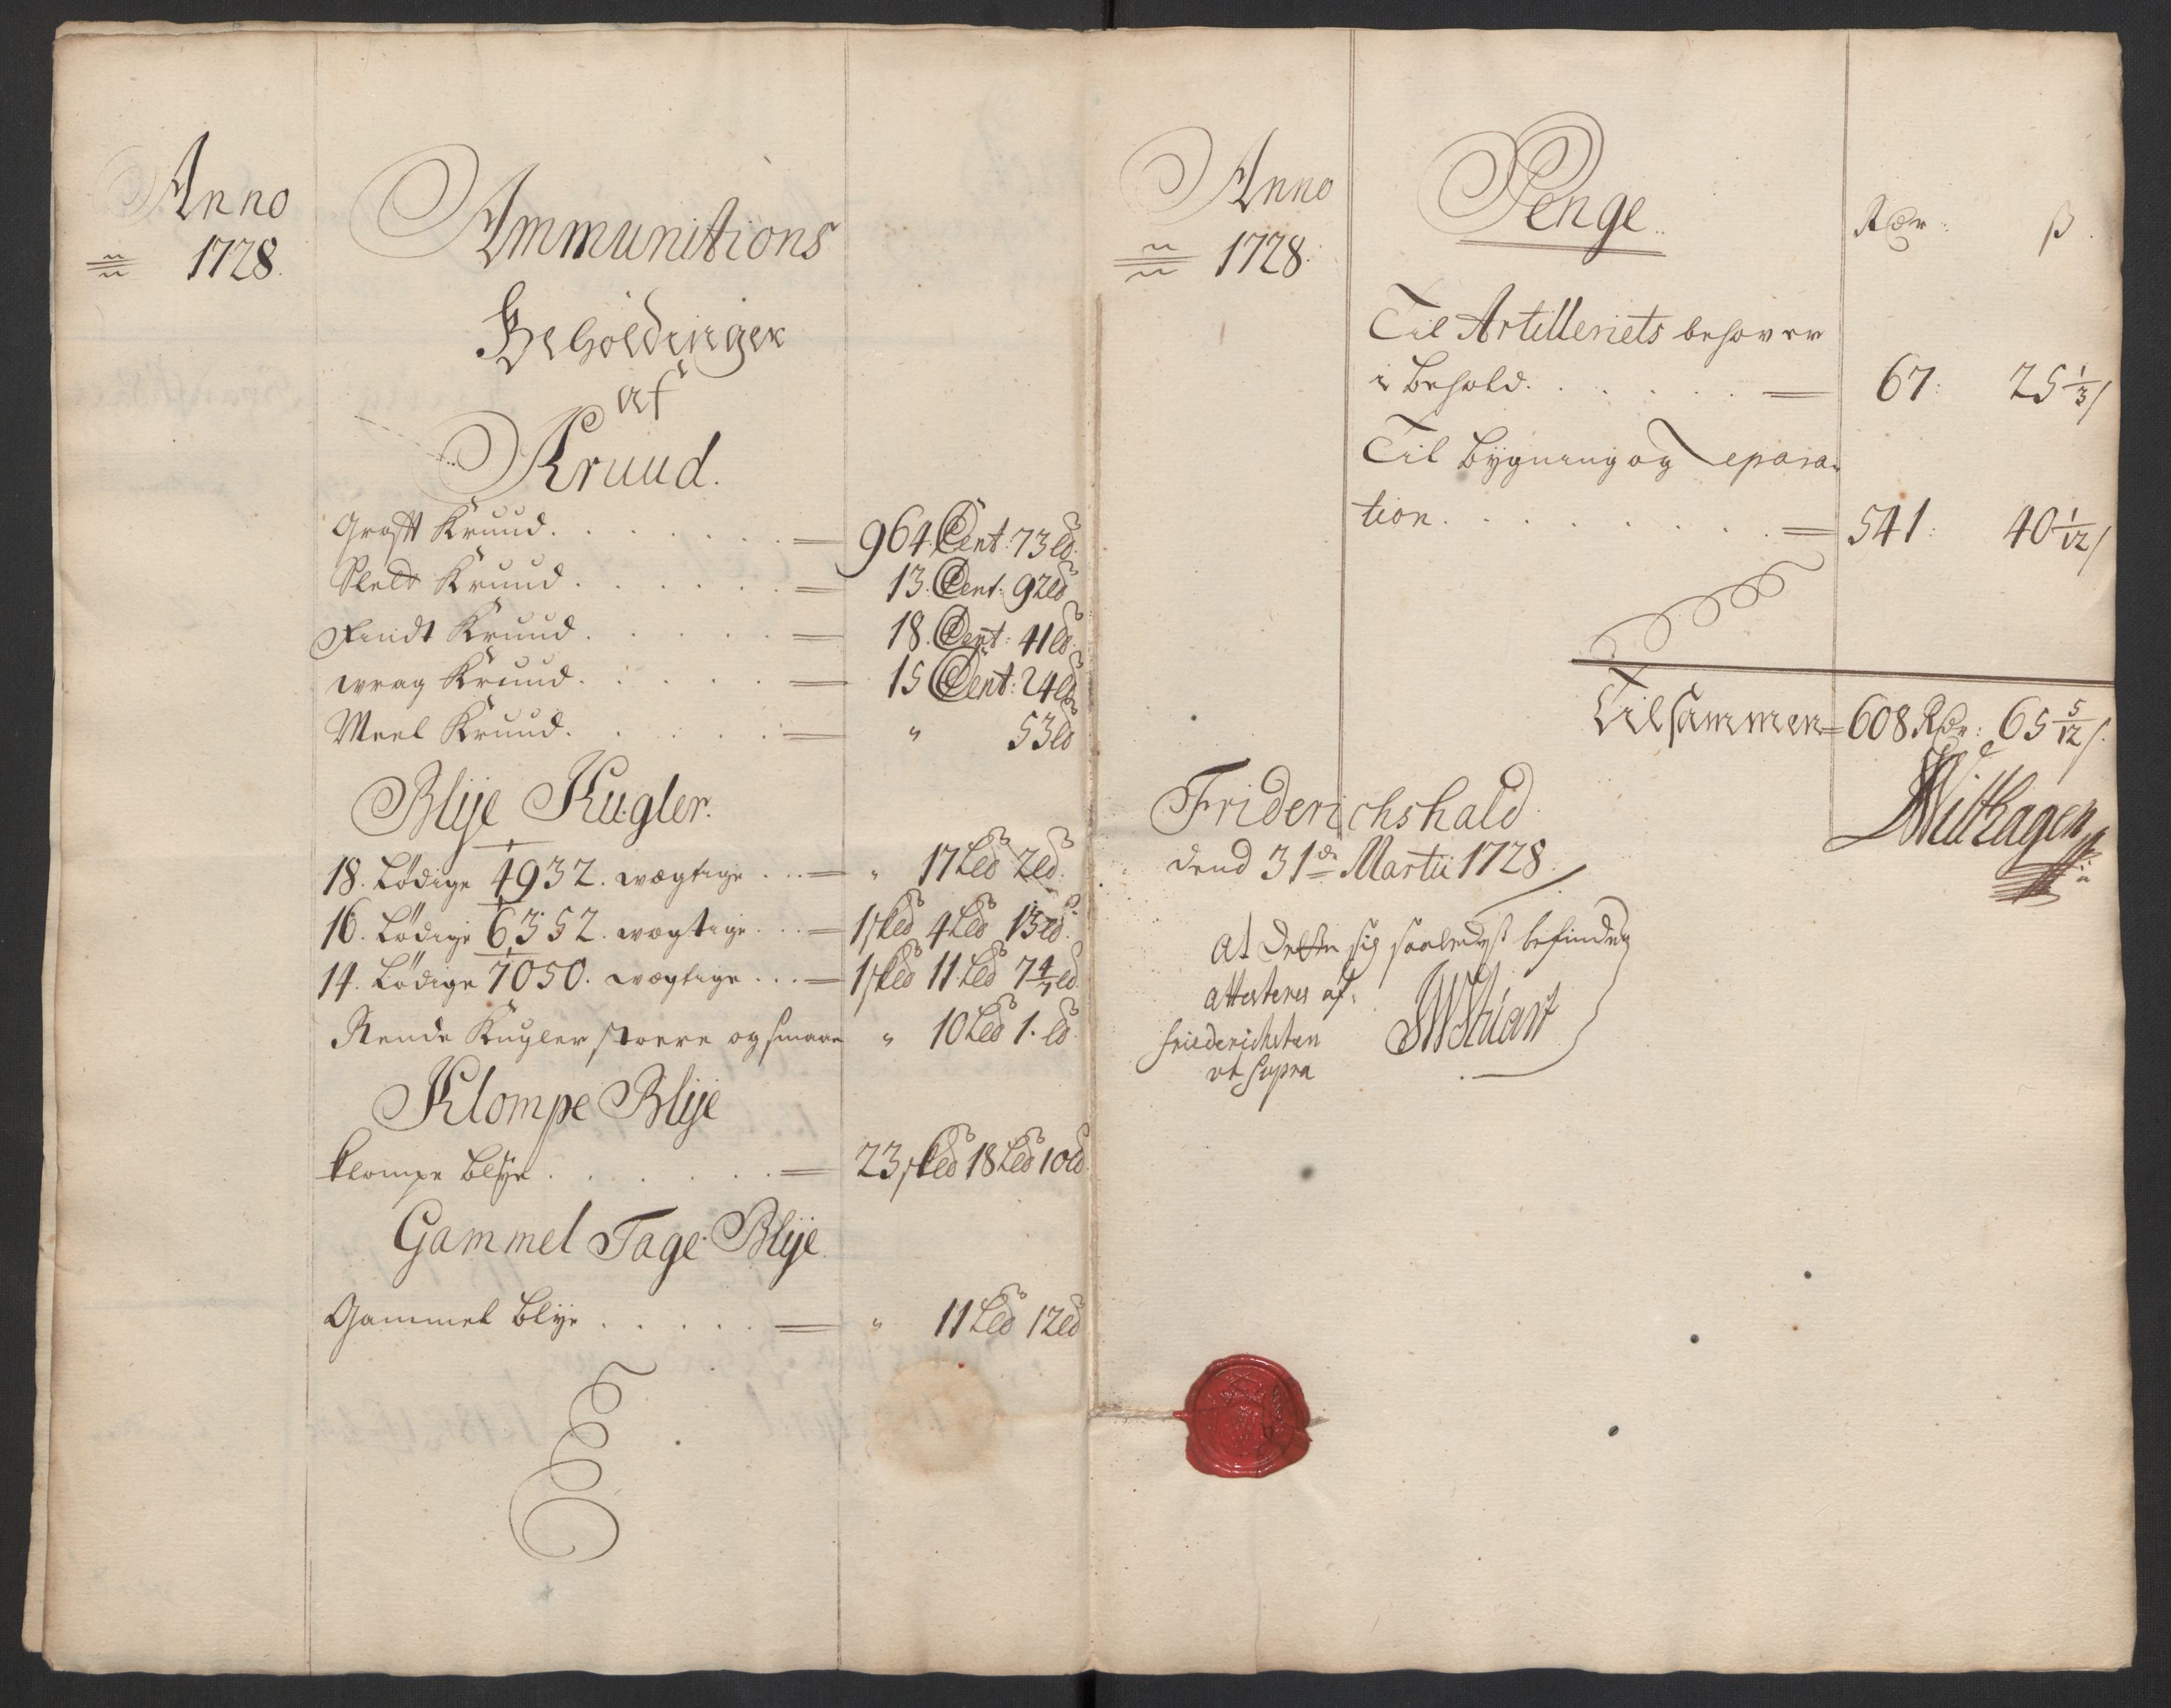 Anno
1728.
Ammunitions
Beholdinger
af
Kruud.
Groft Kruud. = 964. Cent: 73 ℔.
Slet Kruud. = 13. Cent. 92 ℔
Findt Kruud. = 18. Cent: 41 ℔.
wrag Kruud. = 15 Cent: 24 ℔
Meel Kruud. = " 53 ℔
Blije Kugler.
18. Lødige 4932. wægtige = " 17 L℔ 2 ℔.
16. Lødige 6352. wægtige = 1 sk℔ 4 L℔ 13 ℔.
14. Lødige 7050. wægtige = 1 sk℔ 11 L℔ 7 4/7 ℔.
Rende Kugler stoere og smaae " 10 L℔ 1. ℔.
Klompe Blije
klompe blije = 23 sk℔ 18 L℔ 10 ℔.
Gammel Tage Blije.
Gammel blije = " 11 L℔ 12 ℔
Anno
1728.
Penge. Rdr: ß.
Til Artilleriets behover
i behold. = 67: 25 1/3/
Til bygning og Repara-
tion. = 541: 40 1/12/
Tilsammen = 608 Rdr: 65 5/12/.
Friderichshald
dend 31de Martii 1728.
At dette sig saaledes befindes
attesteres af.
friederichsten
ut supra